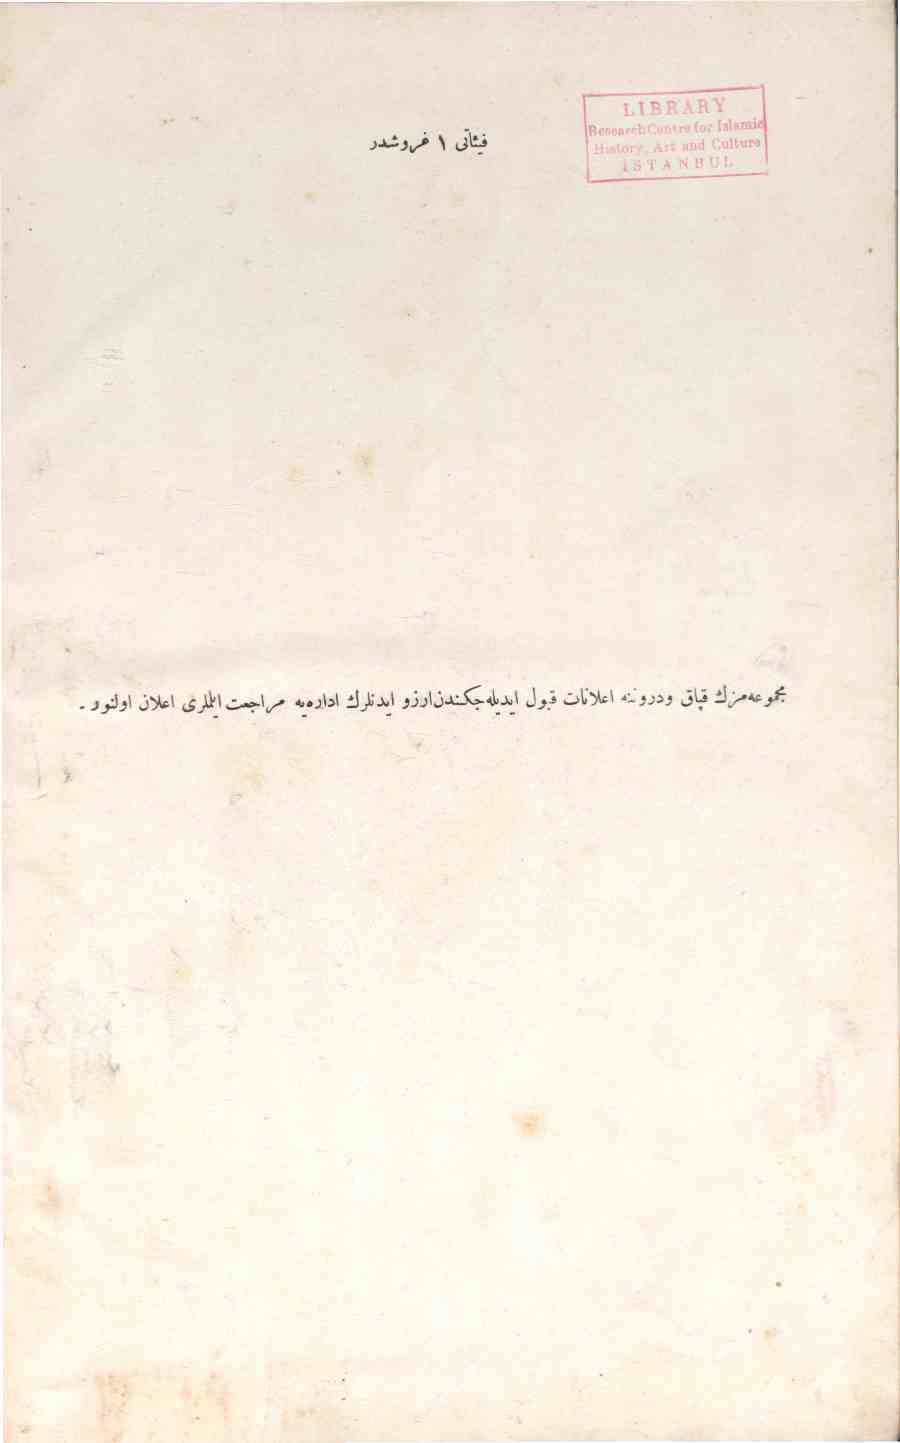 LIBRARY
Research Centre for Islamic
History, Art and Culture
ISTANBUL
فيئاتى ١ غروشدر
مجموعه‌مزك قپاق ودرونه اعلانات قبول ايديله‌جكندن ارزو ايدنلرك اداره‌يه مراجعت ايلملرى اعلان اولنور .